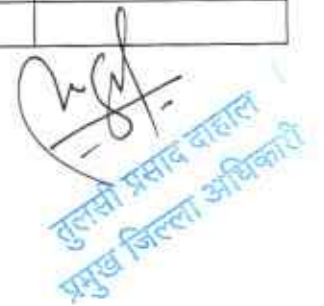 तुलसी प्रसाद दाहाल
प्रमुख जिल्ला अधिकारी